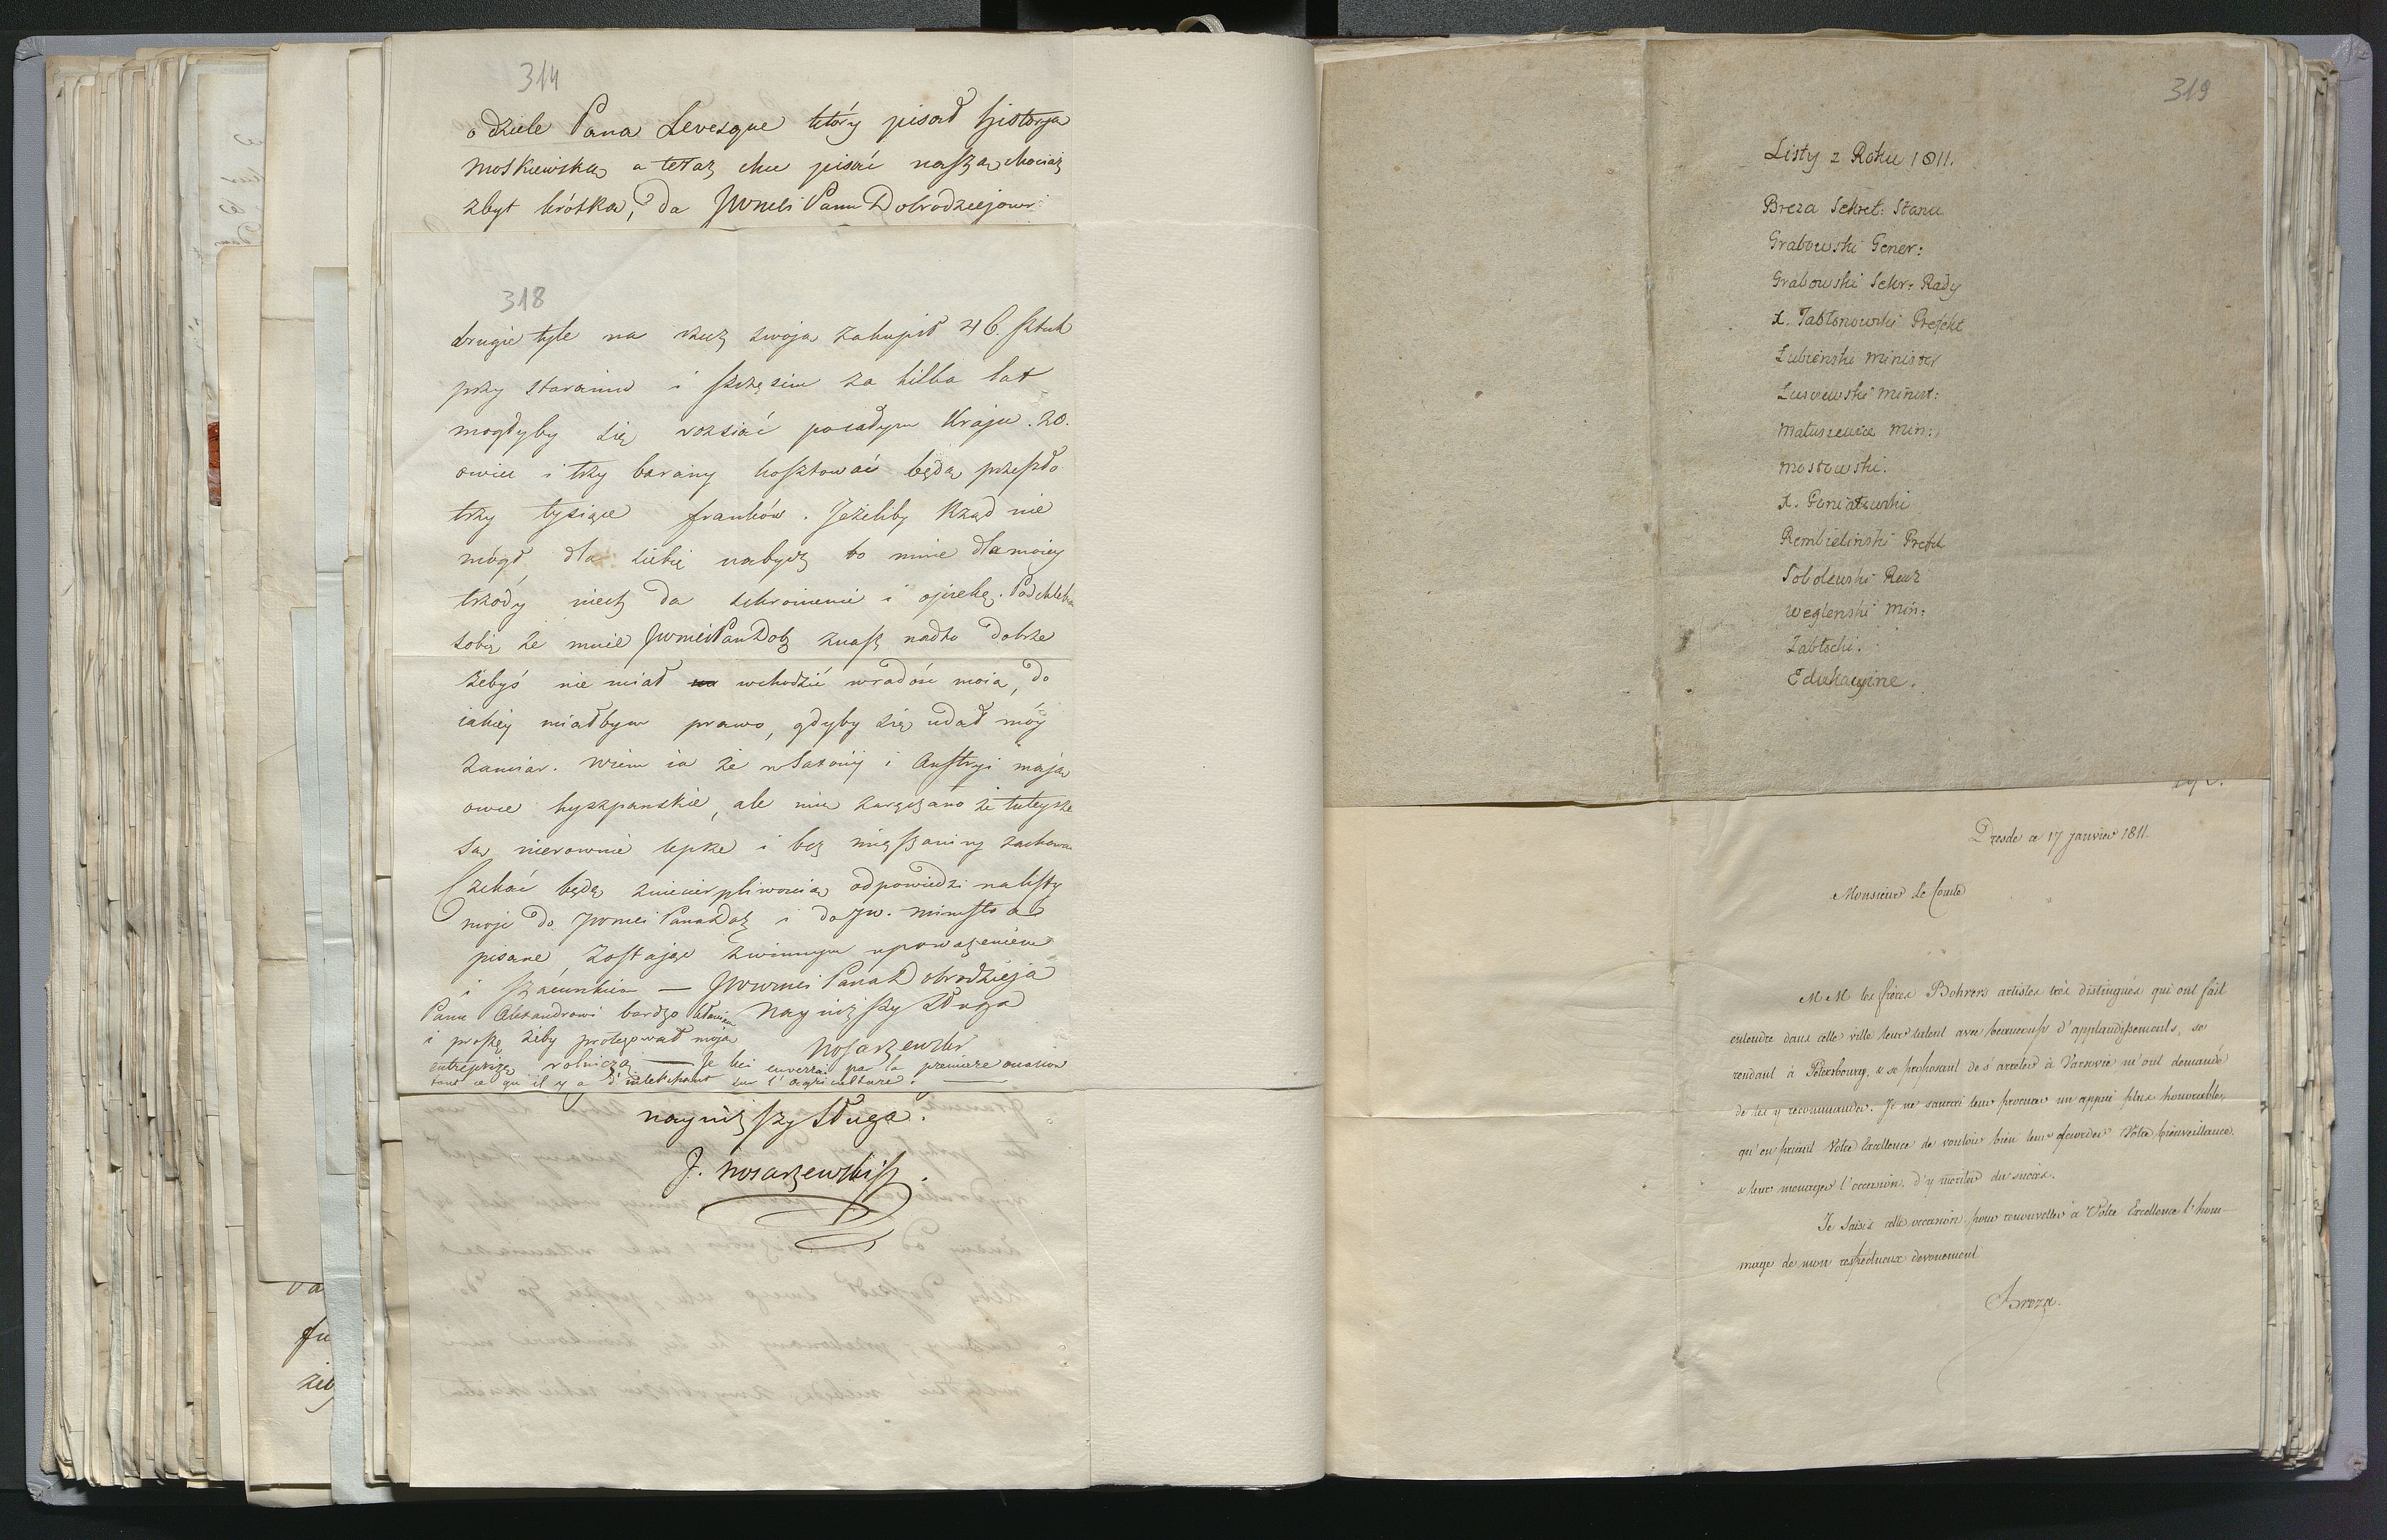 314
o dziele Pana Levesque który pisał historyą
moskiewską a teraz chce pisać naszą chociaż
zbyt krótką, da JWmci Panu Dobrodziejowi
318
drugie tyle na rzecz swoją zakupił 46. sztuk
przy staraniu i szczęściu za kilka lat
mogłyby się rozsiać po całym Kraju. 20.
owiec i trzy barany kosztować będą przeszło
trzy tysiące franków. Jeżeliby Rząd nie
mógł dla siebie nabydź to mnie dla moiey
trzody niech da schronienie i opiekę. Podchlebiam
sobie że mnie JWmci Pan Dob znasz nadto dobrze
żebyś nie miał wchodzić w radość moią, do
iakiey miałbym prawo, gdyby się udał móy
zamiar. Wiem ia że w Saxonij i Austryi maią
owce hyszpanskie, ale mię zaręczano że tuteysze
są nierownie lepsze i bez mięszaniny zachowane
Czekać będę z niecierpliwością odpowiedzi na listy
moje do JWmci Pana Dob i do JW. Ministra
pisane, zostając z winnym upoważeniem
i szacunkiem — JWWmci Pana Dobrodzieja
Panu Alexandrowi bardzo kłaniam Nayniższy Sługa
i proszę żeby protegował moją
Nosarzewski
entreprizę rolniczą — Je lui enverrai par la premiere occasion
tout ce qu'il y a d'intéressant sur l'agriculture.
nayniższy Sługa.
J. Nosarzewski
319
Listy z Roku 1811.
Breza Sekret: Stanu
Grabowski Gener:
Grabowski Sekr: Rady
X. Jabłonowski Prefekt
Łubieński Minister
Łuszczewski Minist:
Matuszewicz Min:
Mostowski.
X. Poniatowski
Rembieliński Prefekt
Sobolewski Rewz
Węgleński Min:
Zabłocki.
Edukacyine.
Dresde ce 17 Janvier 1811.
Monsieur le Comte
MM les frères Bohrers artistes très distingués qui ont fait
entendre dans cette ville leur talent avec beaucoup d'applaudissements, se
rendant à Petersbourg, & se proposant de s'arrêter à Varsovie m'ont demandé
de les y recommander. Je ne saurai leur procurer un appui plus honorable,
qu'en priant Votre Excellence de vouloir bien leur accorder Votre bienveillance,
& leur menager l'occasion d'y meriter du succès.
Je saisis cette occasion pour renouveller à Votre Excellence l'hom-
mage de mon respectueux devouement
Breza.